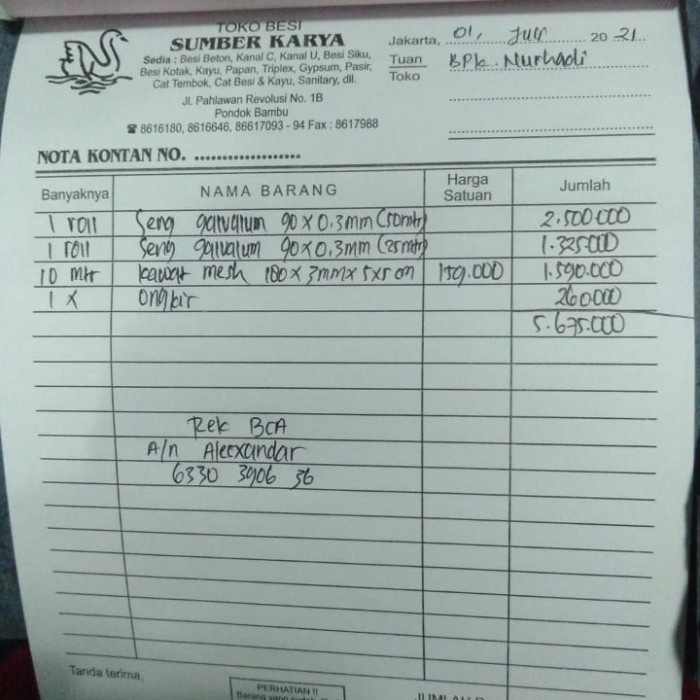 TOKO BESI
SUMBER KARYA
Sedia : Besi Beton, Kanal C, Kanal U, Besi Siku,
Besi Kotak, Kayu, Papan, Triplex, Gypsum, Pasir,
Cat Tembok, Cat Besi & Kayu, Sanitary, dll.
Jl. Pahlawan Revolusi No. 1B
Pondok Bambu
☎ 8616180, 8616646, 86617093 - 94 Fax : 8617988
Jakarta, 01, Juli 20 21
Tuan
Toko
BPk. Nurhadi
NOTA KONTAN NO. ...................
Banyaknya NAMA BARANG Harga Satuan Jumlah
1 roll Seng galvalum 90 x 0.3mm (50mtr) 2.500.000
1 roll Seng galvalum 90x0,3mm (25mtr) 1.325.000
10 mtr kawat mesh 180 x 3mm x 5x5 cm 159.000 1.590.000
1 x ongkir 260000
5.675.000
Rek BCA
A/n Aleexandar
6330 3906 36
Tanda terima,
PERHATIAN !!